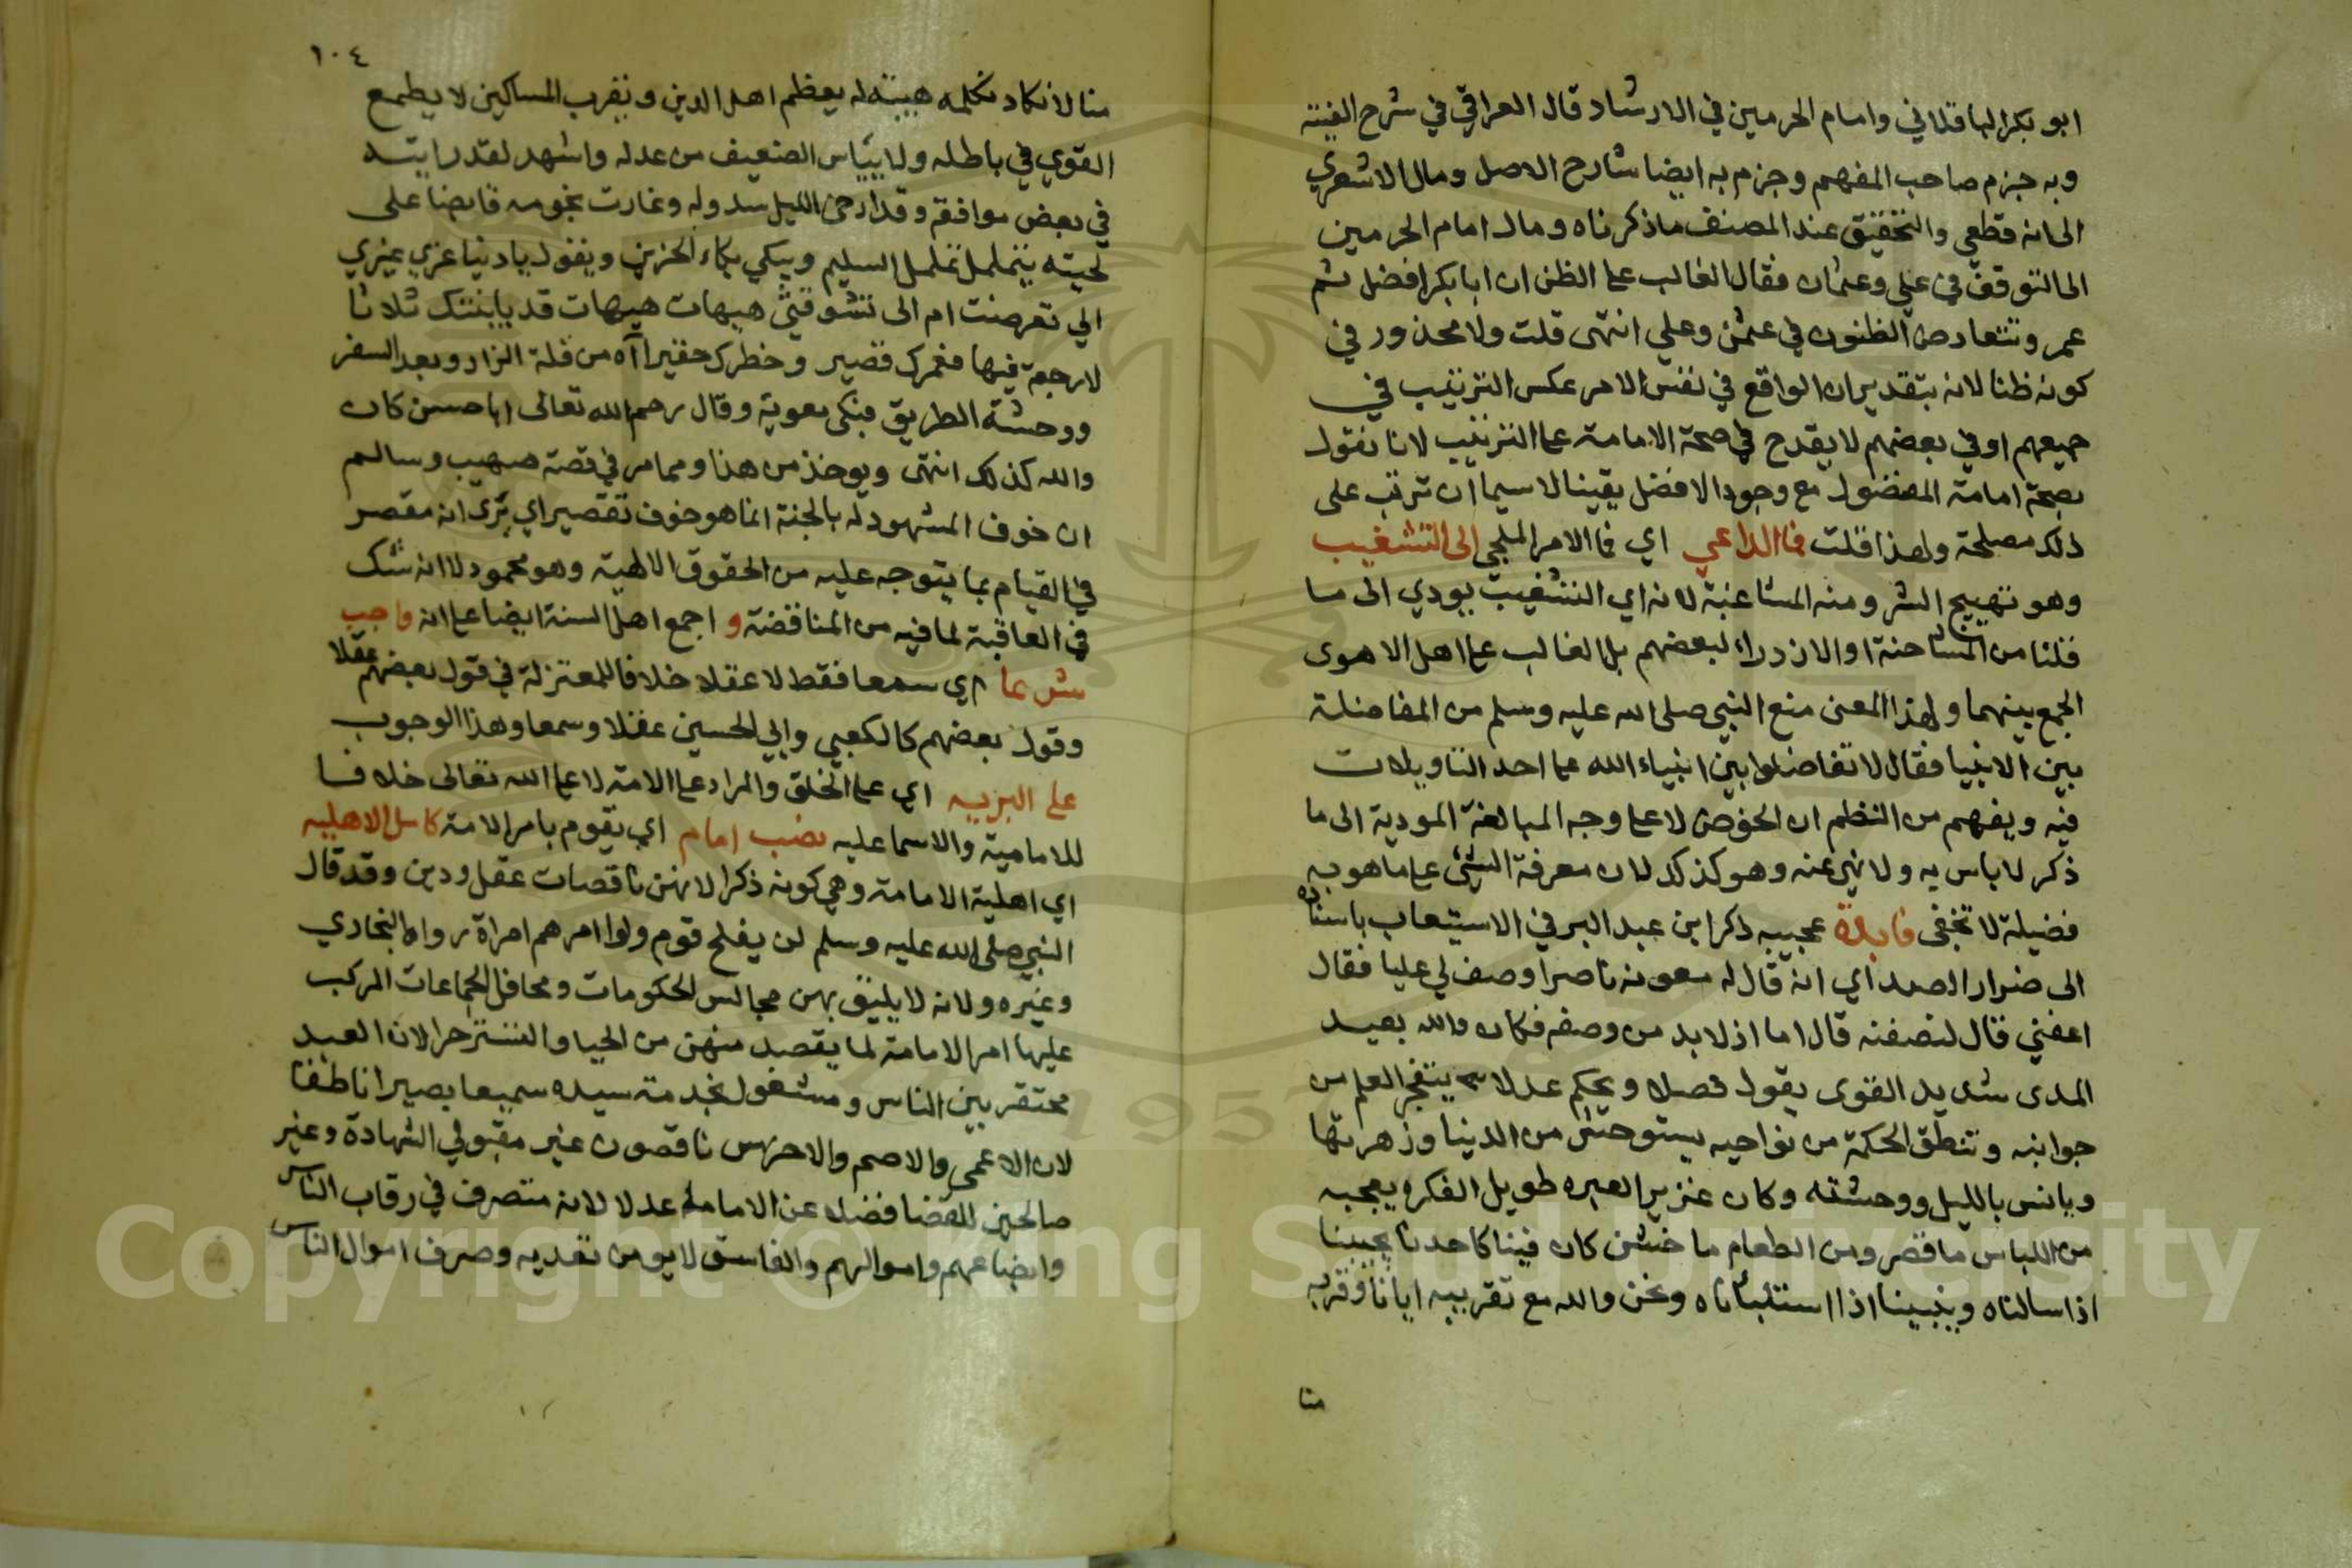 ابو بكر الباقلاني وامام الحرمين في الارشاد قال العراقي في شرح الفيته
وبه جزم صاحب المفهم وجزم به ايضا شارح الاصل ومال الاشعري
الى انه قطعي والتحقيق عند المصنف ماذكرناه ومال امام الحرمين
الى التوقف في علي وعثمان فقال الغالب على الظن ان ابا بكر افضل ثم
عمر وتتعارض الظنون في عثمن وعلي انتهى قلت ولا محذور في
كونه ظنا لانه بتقدير ان الواقع في نفس الامر عكس الترتيب في
جميعهم او في بعضهم لا يقدح في صحة الامامة على الترتيب لانا نقول
بصحة امامة المفضول مع وجود الافضل يقينا لا سيما ان ترتب على
ذلك مصلحة ولهذا قلت فما الداعي اي فما الامر الملجي الى التشغيب
وهو تهييج الشر ومنه المشاغبة لانه اي التشغيب يودي الى ما
قلنا من المشاحنة او الازدراء لبعضهم بل الغالب على اهل الاهوى
الجمع بينهما ولهذا المعنى منع النبي صلى الله عليه وسلم من المفاضلة
بين الانبيا فقال لا تفاضلوا بين انبياء الله على احد التاويلات
فيه ويفهم من النظم ان الخوض لا على وجه المبالغة المودية الى ما
ذكر لا باس به ولا نهي عنه وهو كذلك لان معرفة الشئ على ما هو به
فضيلة لا تخفى فايدة عجيبه ذكر ابن عبد البر في الاستيعاب باسناده
الى ضرار الصداي انه قال له معويه يا ضرار صف لي عليا فقال
اعفني قال لتصفنه قال اما اذ لا بد من وصفه فكان والله بعيد
المدى شديد القوى يقول فصلا ويحكم عدلا يتفجر العلم من
جوانبه وتنطق الحكمة من نواحيه يستوحش من الدنيا وزهرتها
ويانس بالليل ووحشته وكان غزير العبره طويل الفكره يعجبه
من اللباس ما قصر ومن الطعام ما خشن كان فينا كاحدنا يجيبنا
اذا سالناه وينبينا اذا استنباناه ونحن والله مع تقريبه ايانا وقربه
منا
١٠٤
منا لا نكاد نكلمه هيبة له يعظم اهل الدين ويقرب المساكين لا يطمع
القوي في باطله ولا يياس الضعيف من عدله واشهد لقد رايته
في بعض موافقه وقد ارخى الليل سدوله وغارت نجومه قابضا على
لحيته يتململ تململ السليم ويبكي بكاء الحزين ويقول يا دنيا غري غيري
الي تعرضت ام الى تشوقتي هيهات هيهات قد باينتك ثلاثا
لا رجعة فيها فعمرك قصير وخطرك حقير اآه من قلة الزاد وبعد السفر
ووحشة الطريق فبكى معوية وقال رحم الله تعالى ابا حسن كان
والله كذلك انتهى ويوخذ من هذا ومما مر في قصة صهيب وسالم
ان خوف المشهود له بالجنة انما هو خوف تقصير اي يرى انه مقصر
في القيام بما يتوجه عليه من الحقوق الالهية وهو محمود لا انه شك
في العاقبة لما فيه من المناقضة و اجمع اهل السنة ايضا على انه واجب
شرعا اي سمعا فقط لا عقلا خلافا للمعتزلة في قول بعضهم عقلا
وقول بعضهم كالكعبي وابي الحسين عقلا وسمعا وهذا الوجوب
على البريه اي على الخلق والمراد على الامة لا على الله تعالى خلافا
للامامية والاسماعليه نصب امام اي يقوم بامر الامة كامل الاهليه
اي اهلية الامامة وهي كونه ذكرا لانهن ناقصات عقل ودين وقد قال
النبي صلى الله عليه وسلم لن يفلح قوم ولوا امرهم امراة رواه البخاري
وغيره ولانه لا يليق بهن مجالس الحكومات ومحافل الجماعات المركب
عليها امر الامامة لما يقصد منهن من الحيا والتستر حرا لان العبد
محتقر بين الناس ومشغول بخدمة سيده سميعا بصيرا ناطقا
لان الاعمى والاصم والاخرس ناقصون غير مقبولي الشهادة وغير
صالحين للقضا فضلا عن الامامة عدلا لانه متصرف في رقاب الناس
وابضاعهم واموالهم والفاسق لا يومن تعديه وصرف اموال الناس
Copyright © King Saud University
1957